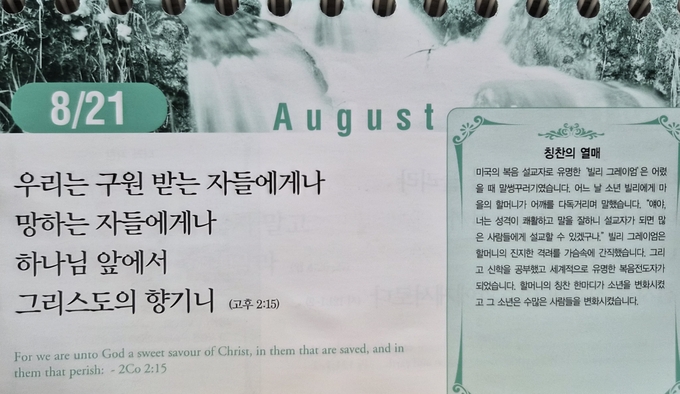 8/21
August
우리는 구원 받는 자들에게나
망하는 자들에게나
하나님 앞에서
그리스도의 향기니 (고후 2:15)
For we are unto God a sweet savour of Christ, in them that are saved, and in
them that perish: - 2Co 2:15
칭찬의 열매
미국의 복음 설교자로 유명한 '빌리 그레이엄'은 어렸
을 때 말썽꾸러기였습니다. 어느 날 소년 빌리에게 마
을의 할머니가 어깨를 다독거리며 말했습니다. "얘야,
너는 성격이 쾌활하고 말을 잘하니 설교자가 되면 많
은 사람들에게 설교할 수 있겠구나." 빌리 그레이엄은
할머니의 진지한 격려를 가슴속에 간직했습니다. 그리
고 신학을 공부했고 세계적으로 유명한 복음전도자가
되었습니다. 할머니의 칭찬 한마디가 소년을 변화시켰
고 그 소년은 수많은 사람들을 변화시켰습니다.